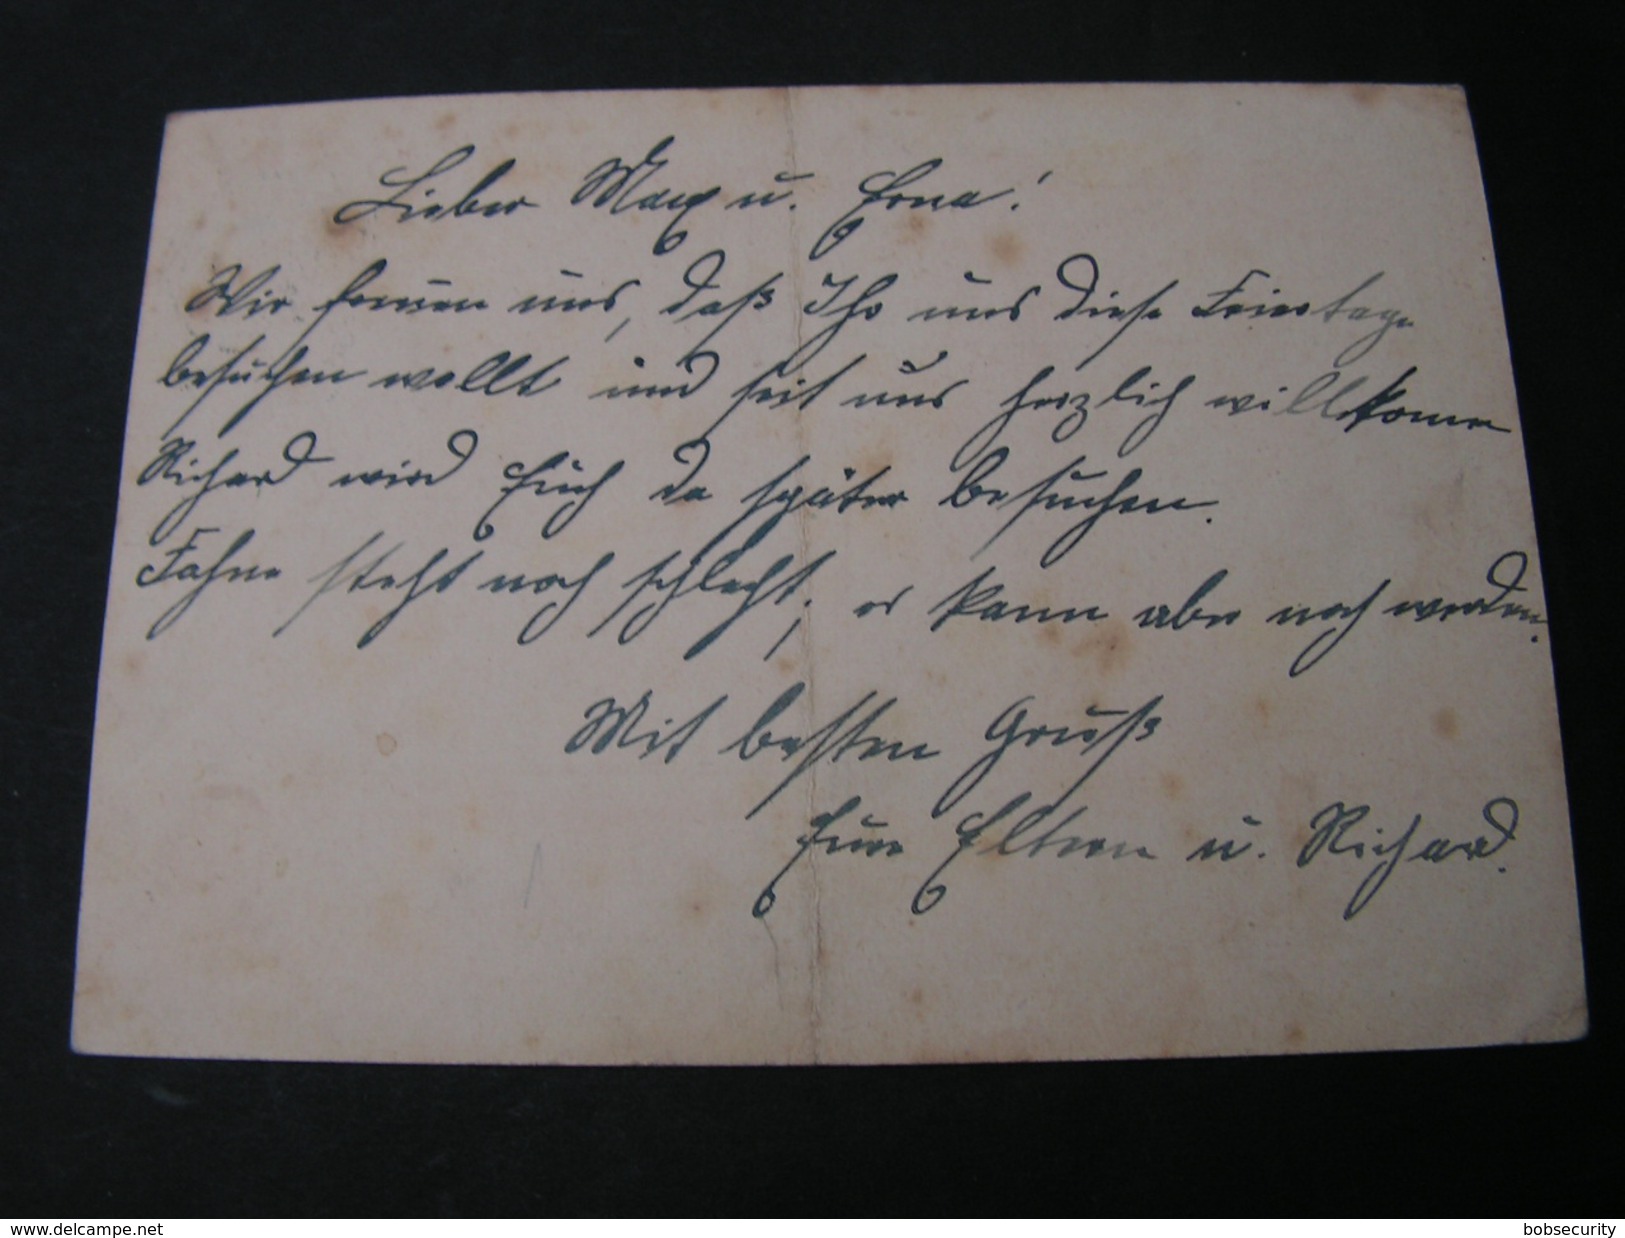 Lieber Max u. Erna!
Wir freuen uns, daß Ihr uns diese Feiertage
besuchen wollt und seit uns herzlich willkomen
Richard wird Euch da später besuchen.
steht noch schlecht, es kann aber noch werden.
Mit besten Gruß
Eure Eltern u. Richard.
www.delcampe.net
bobsecurity